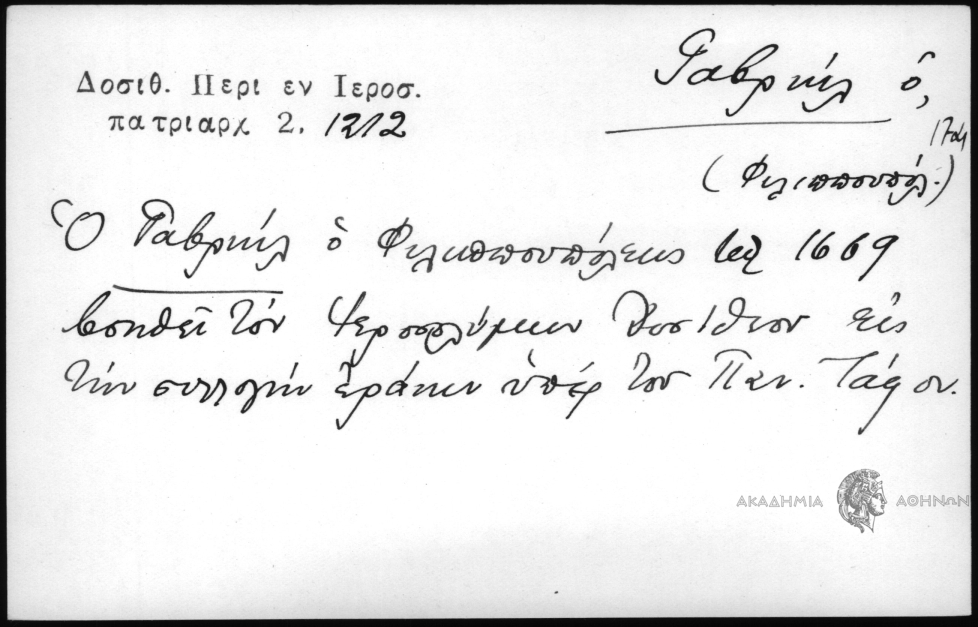 Δοσιθ. Περι εν Ιεροσ.
πατριαρχ 2. 1212
Γαβριήλ ὁ,
(Φιλιππουπόλ.)
Ὁ Γαβριήλ ὁ Φιλιππουπόλεως τῷ 1669
βοηθεῖ τὸν Ἱεροσολύμων Δοσίθεον εἰς
τὴν συλλογὴν ἐράνων ὑπὲρ τοῦ Παν. Τάφου.
ΑΚΑΔΗΜΙΑ ΑΘΗΝΩΝ